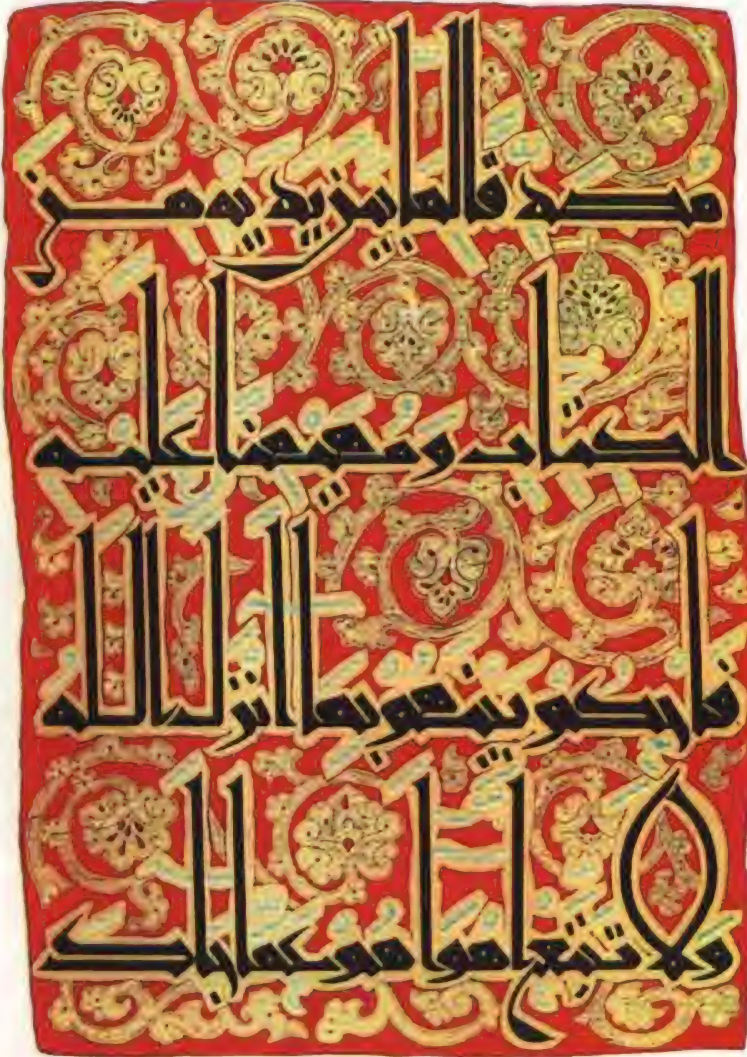 مصدقا لما بين يديه من
الكتاب ومهيمنا عليه
فاحكم بينهم بما انزل الله
ولا تتبع اهواهم عما جاك